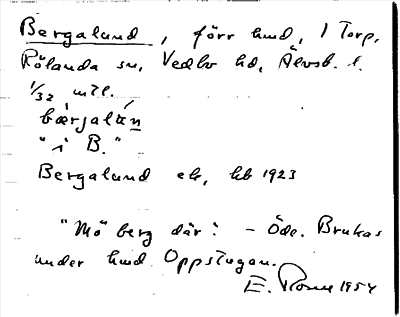 Bergalund, förr hmd, 1 Torp,
Rölanda sn, Vedbo hd, Älvsb. l.
1/32 mtl.
bærjalún
"i B."
Bergalund ek, kb 1923
"Mö berg där". - Öde. Brukas
under hmd Oppstugan.
E. 1954